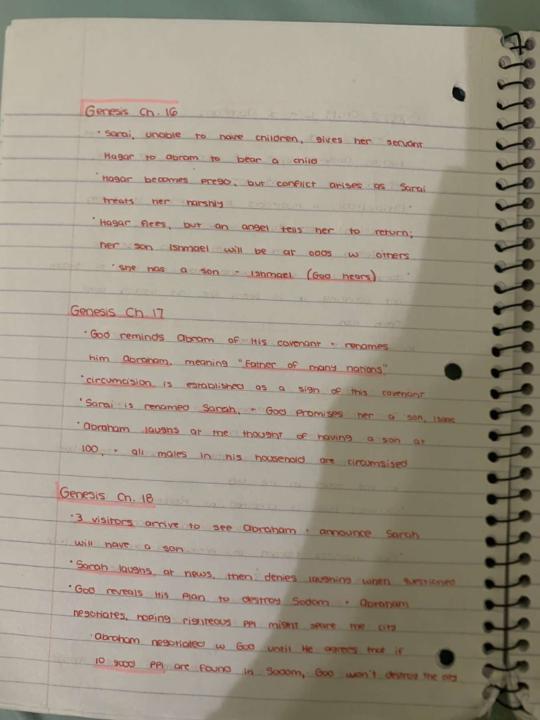 Genesis Ch. 16
• Sarai, unable to have children, gives her servant
Hagar to Abram to bear a child
• Hagar becomes prego, but conflict arises as Sarai
treats her harshly
• Hagar flees, but an angel tells her to return;
her son Ishmael will be at odds w others
• she has a son - Ishmael (God hears)
Genesis Ch. 17
• God reminds Abram of His covenant + renames
him Abraham, meaning "Father of many nations"
• circumcision is established as a sign of this covenant
• Sarai is renamed Sarah, + God promises her a son, Isaac
• Abraham laughs at the thought of having a son at
100, + all males in his household are circumsised
Genesis Ch. 18
• 3 visitors arrive to see Abraham + announce Sarah
will have a son
• Sarah laughs, at news, then denies laughing when questioned
• God reveals His plan to destroy Sodom + Abraham
negotiates, hoping righteous ppl might spare the city
• Abraham negotiated w God until He agrees that if
10 good ppl are found in Sodom, God won't destroy the city